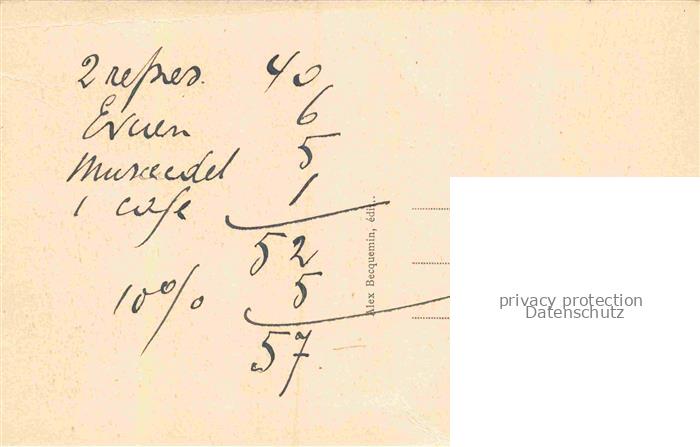 2 repas. 40
Evian 6
Muscadet 5
1 café 1
52
10% 5
57
Alex Becquemin, édi...
privacy protection
Datenschutz